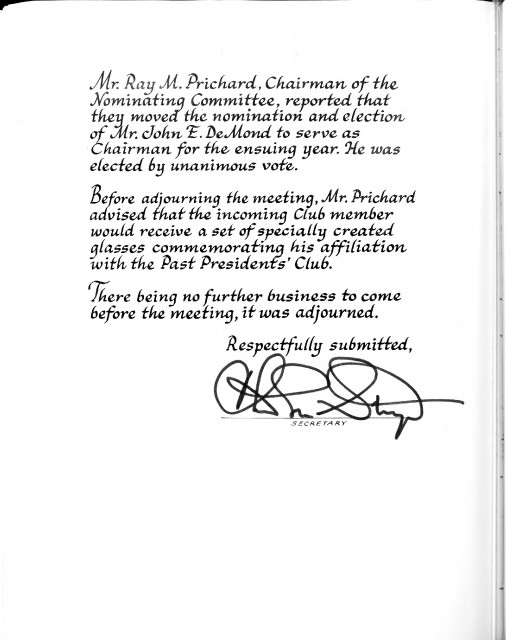 Mr. Ray M. Prichard, Chairman of the
Nominating Committee, reported that
they moved the nomination and election
of Mr. John E. DeMond to serve as
Chairman for the ensuing year. He was
elected by unanimous vote.
Before adjourning the meeting, Mr. Prichard
advised that the incoming Club member
would receive a set of specially created
glasses commemorating his affiliation
with the Past Presidents' Club.
There being no further business to come
before the meeting, it was adjourned.
Respectfully submitted,
SECRETARY